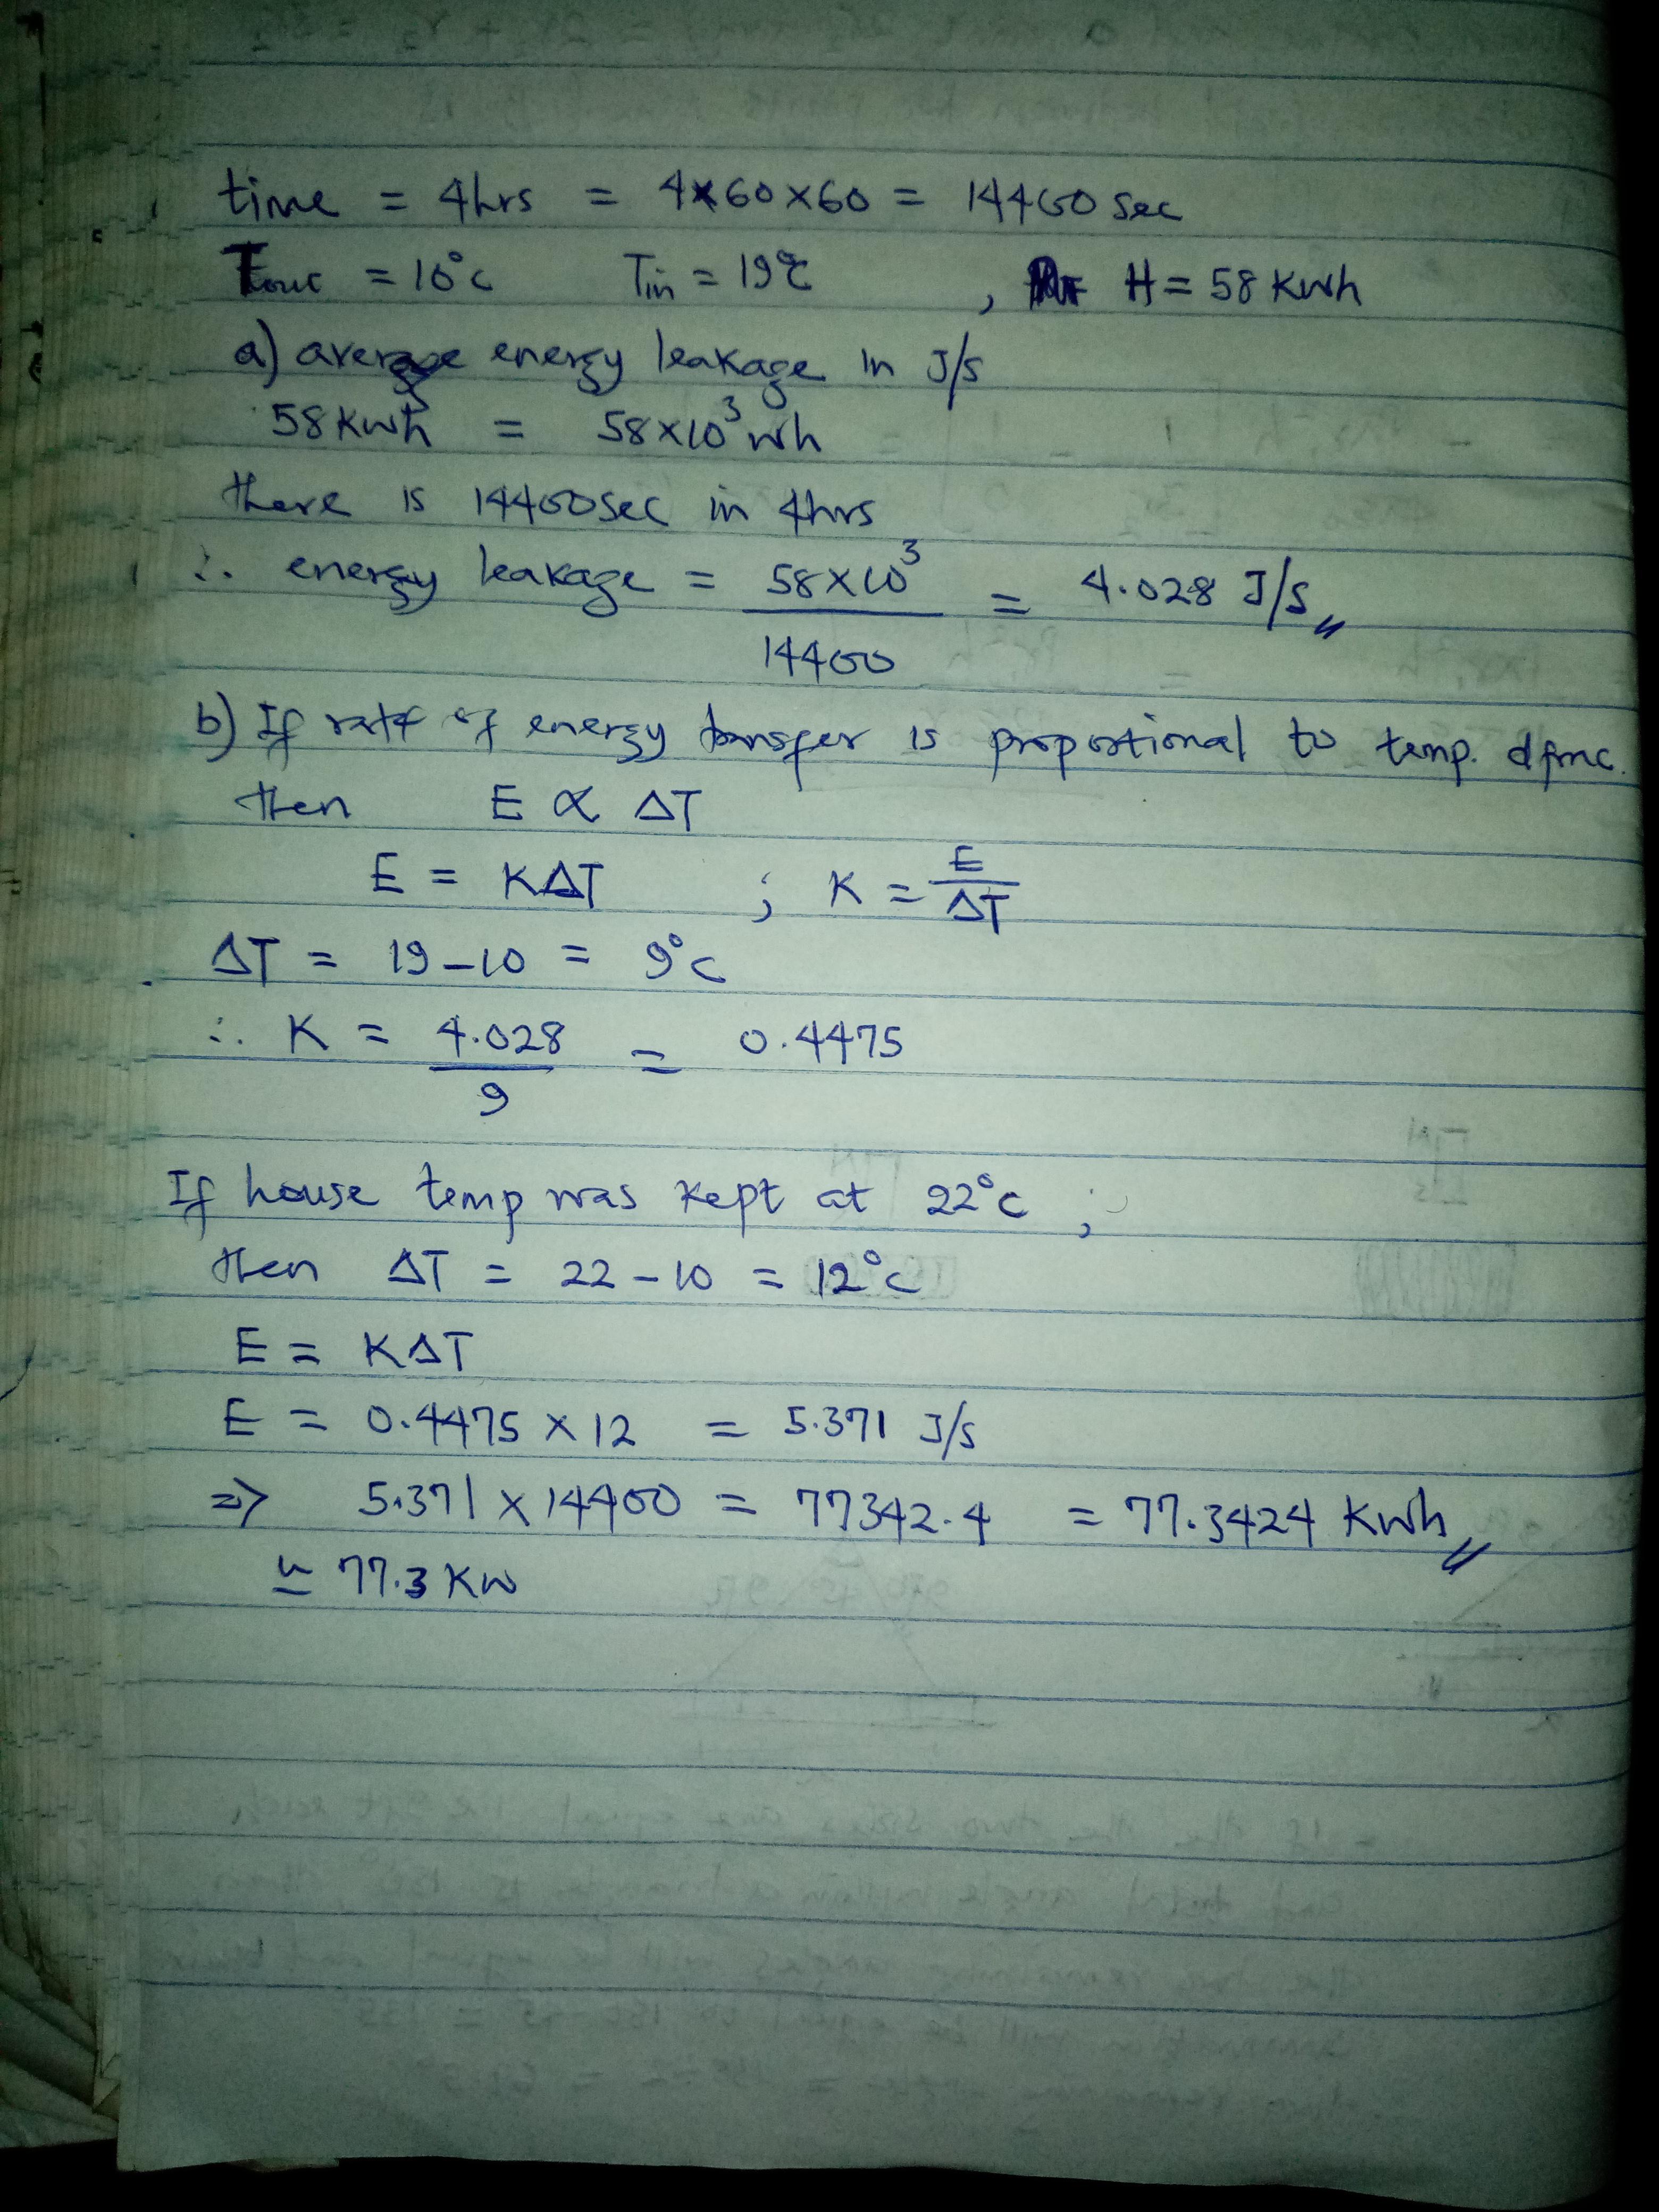 time = 4hrs = 4×60×60 = 14400 sec
Tout = 10°C Tin = 19°C , H = 58 Kwh
a) average energy leakage in J/s
58 Kwh = 58×10³ wh
there is 14400sec in 4hrs
∴ energy leakage = 58×10³ / 14400 = 4.028 J/s
b) If rate of energy transfer is proportional to temp. dfnc.
then E ∝ ΔT
E = KΔT ; K = E/ΔT
ΔT = 19-10 = 9°C
∴ K = 4.028 / 9 = 0.4475
If house temp was kept at 22°C ;
then ΔT = 22-10 = 12°C
E = KΔT
E = 0.4475 × 12 = 5.371 J/s
⇒ 5.371 × 14400 = 77342.4 = 77.3424 Kwh
≃ 77.3 KW